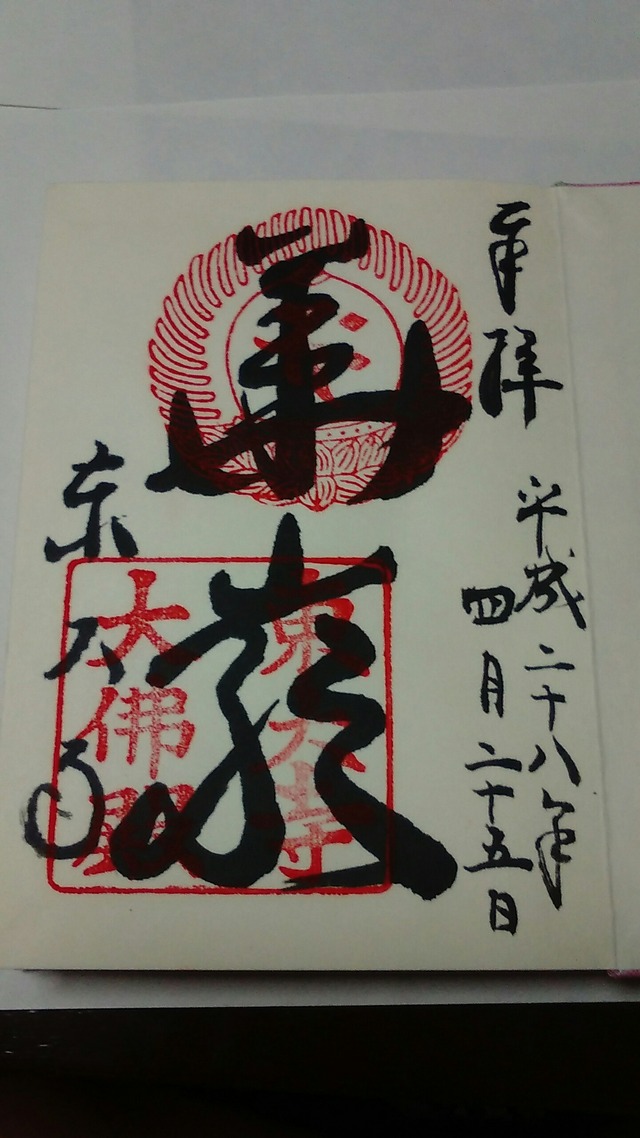 奉拝
平成二十八年
四月二十五日
華嚴
東大寺
東大寺
大佛殿